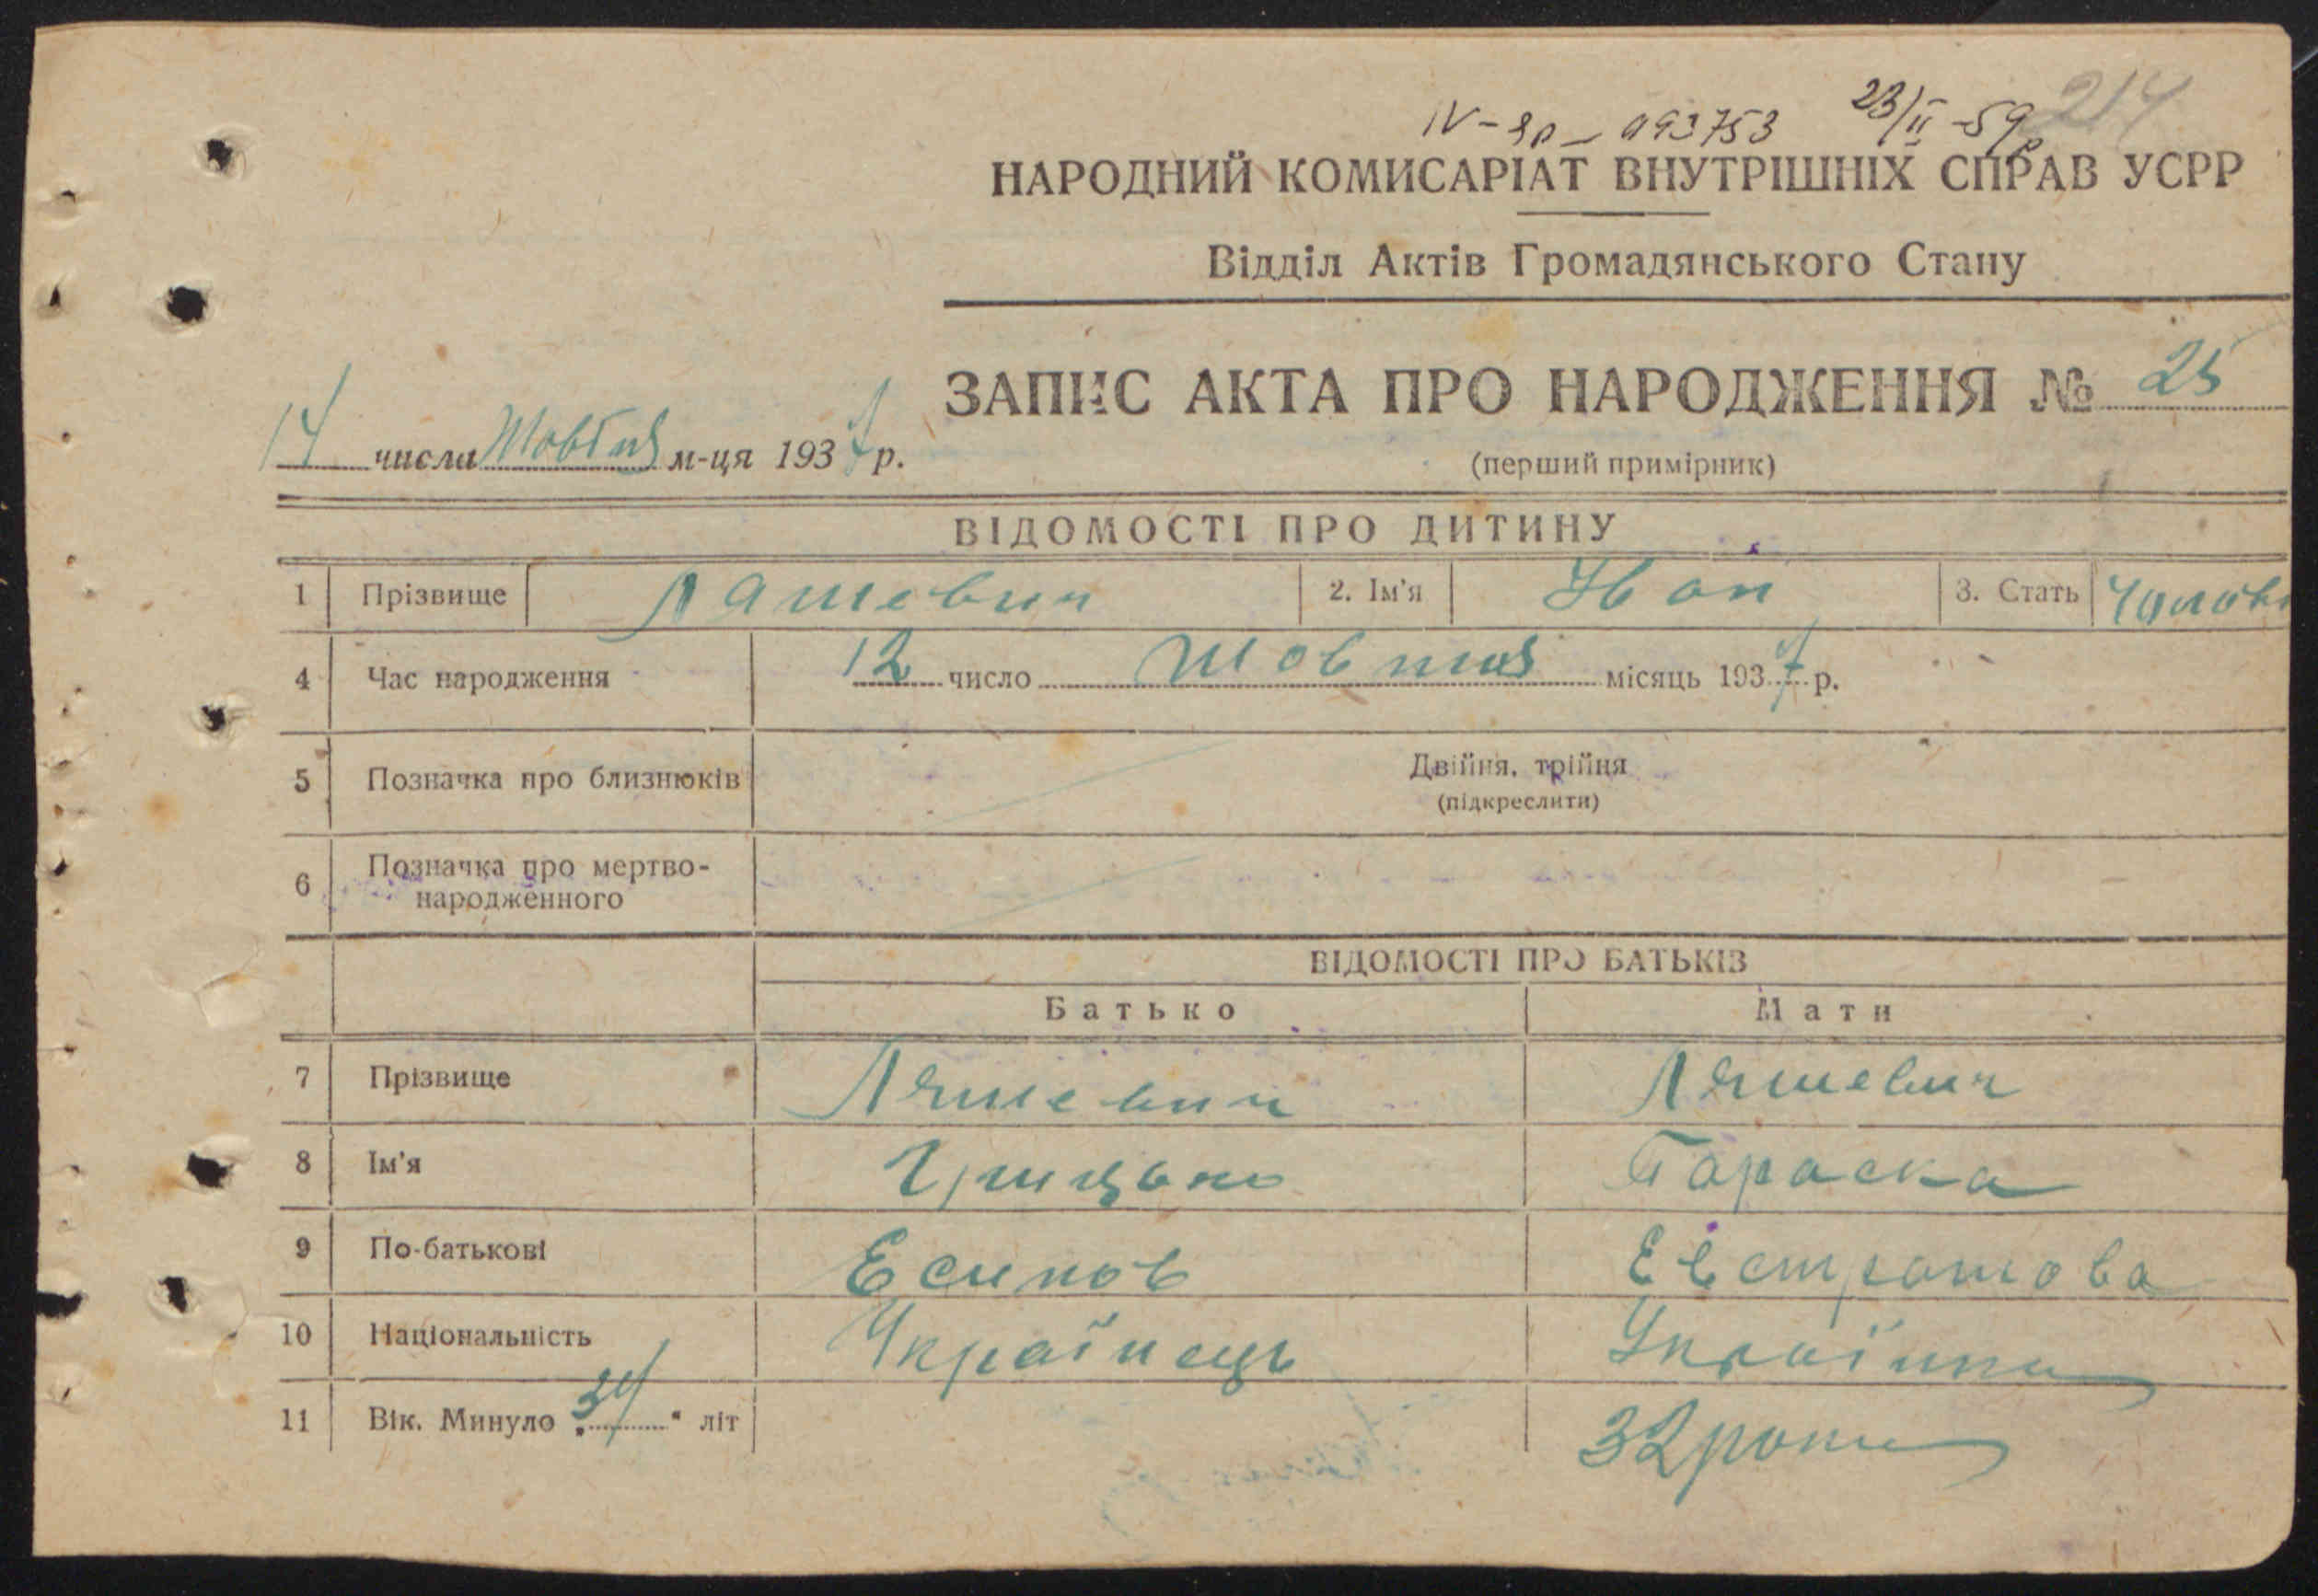 IV-яр - 093753 23/II-59р 214
НАРОДНИЙ КОМИСАРІАТ ВНУТРІШНІХ СПРАВ УСРР
Відділ Актів Громадянського Стану
ЗАПИС АКТА ПРО НАРОДЖЕННЯ № 25
14 числа Жовтня м-ця 1937 р.
(перший примірник)
ВІДОМОСТІ ПРО ДИТИНУ
1 Прізвище Ляшевич 2. Ім'я Іван 3. Стать Чолові
4 Час народження 12 число Жовтня місяць 1937 р.
5 Позначка про близнюків Двійня, трійня
(підкреслити)
6 Позначка про мертво-
народженного
ВІДОМОСТІ ПРО БАТЬКІВ
Батько Мати
7 Прізвище Ляшевич Ляшевич
8 Ім'я Грицько Параска
9 По-батькові Есипов Евстратова
10 Національність Українець Українка
11 Вік. Минуло „34“ літ 32 роки